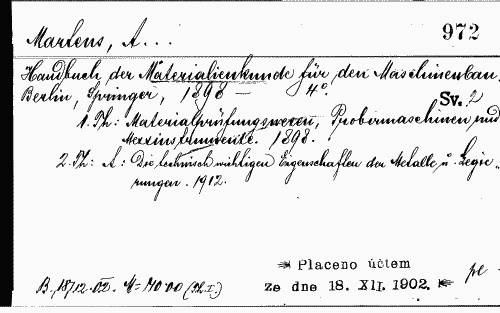 Martens, A...
972
Handbuch der Materialienkunde für den Maschinenbau,
Berlin, Springer, 1898 — 4°.
Sv. 2
1. Th: Materialprüfungswesen, Probiermaschinen und
Messinstrumente. 1898.
2. Th: A: Die technisch wichtigen Eigenschaften der Metalle u. Legie-
rungen. 1912.
Placeno účtem
ze dne 18. XII. 1902.
B. 18/12.02. M=40.00 (Sv. I.)